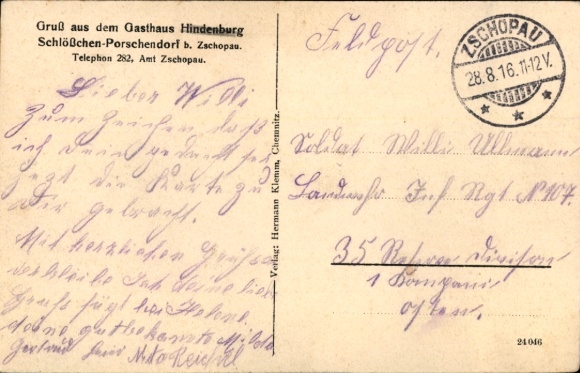 Gruß aus dem Gasthaus Hindenburg
Schlößchen-Porschendorf b. Zschopau.
Telephon 282, Amt Zschopau.
Lieber Willi
Zum Zeichen daß
ich dein gedacht
die Karte zu
Dir gebracht.
Mit herzlichen
verbleibe deine liebe
Helene
deine gutbekannte Milda
Gertrud Reichel
Verlag: Hermann Klemm, Chemnitz.
Feldpost.
ZSCHOPAU
28.8.16.11-12V.
* * *
Soldat Willi Ullmann
Landw. Inf. Rgt. N 107.
35 Reserve Division
1 Kompani
Osten.
24046